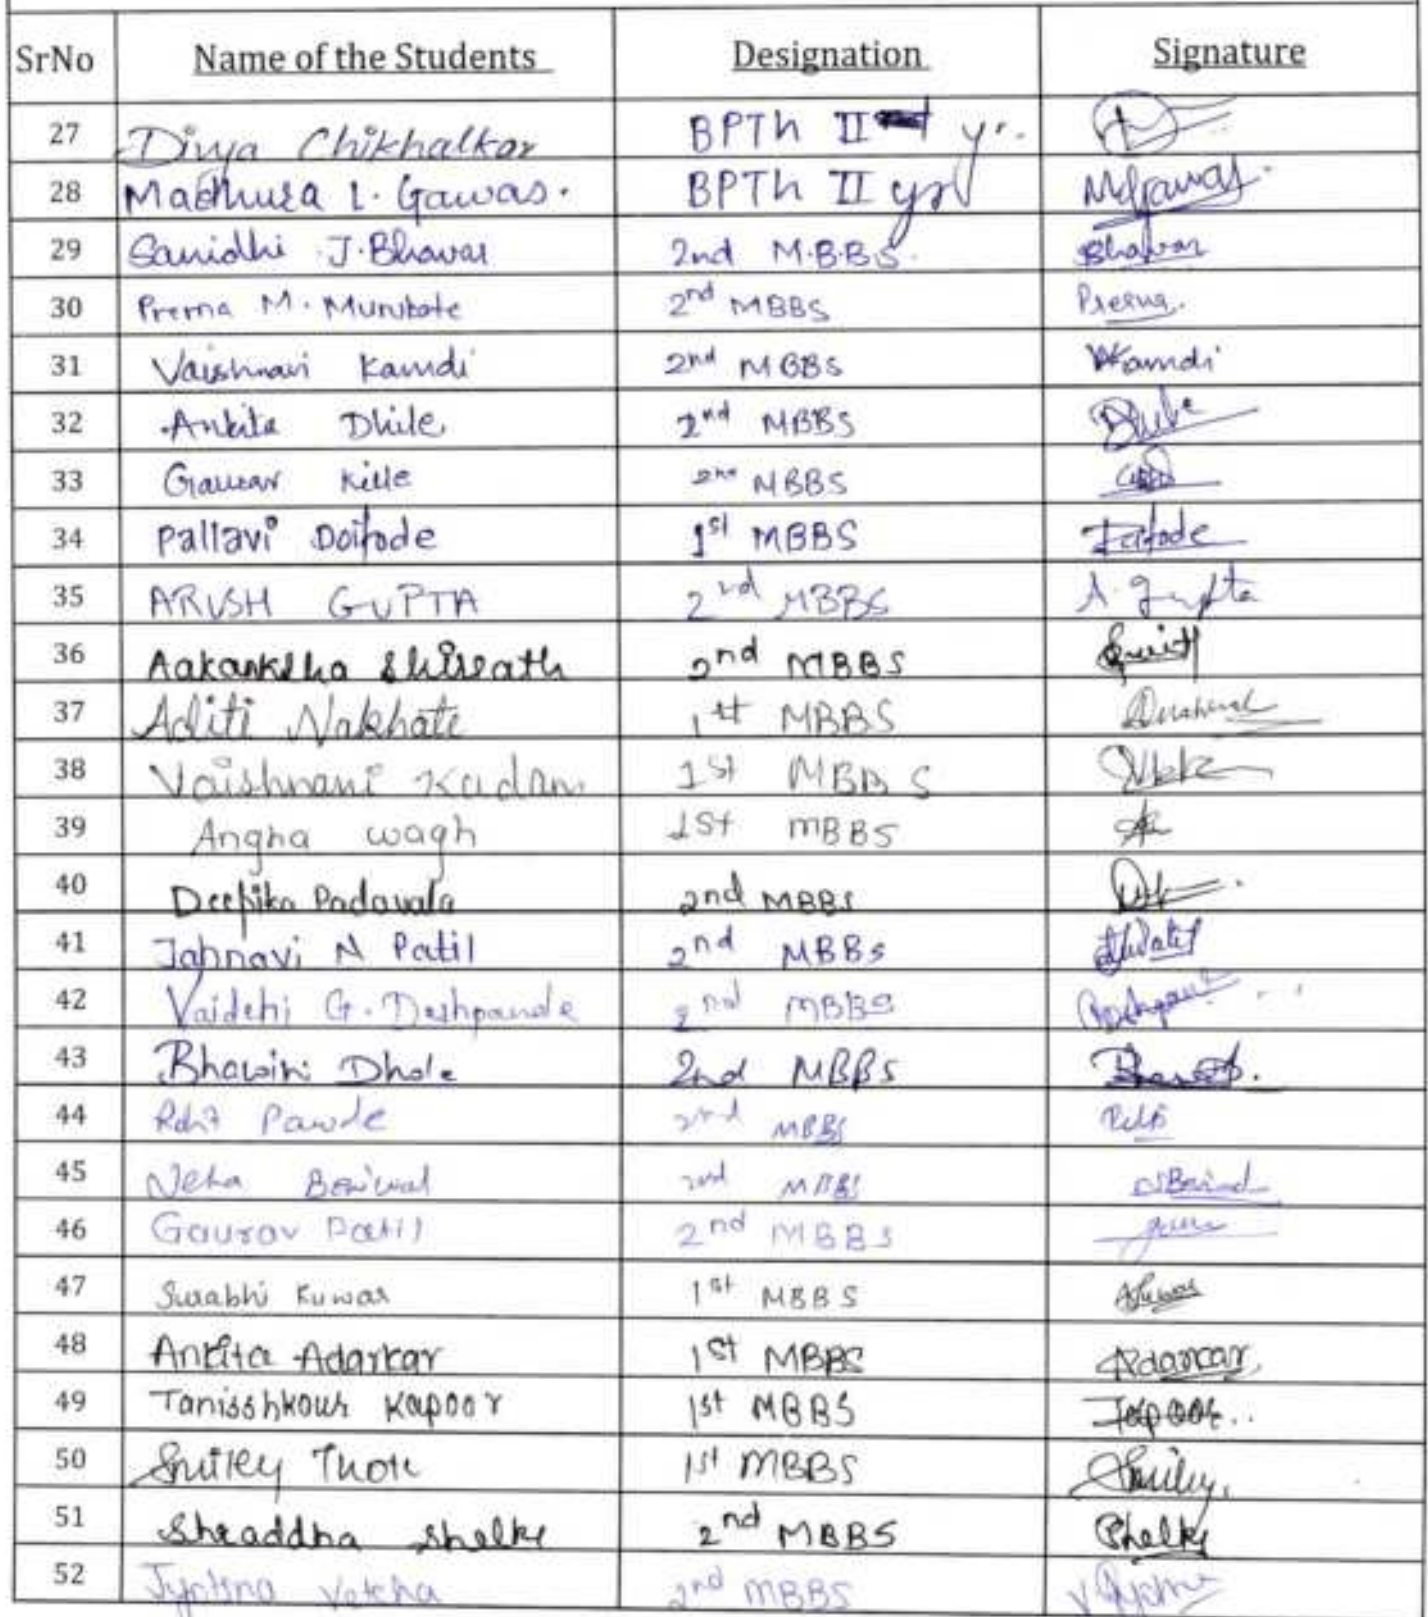 SrNo Name of the Students Designation Signature
27 Divya Chikhalkar BPTh II yr.
28 Madhura L. Gawas. BPTh II yr MLGawas.
29 Sanidhi J. Bhavar 2nd M.B.B.S. Bhavar
30 Prerna M. 2nd MBBS Prerna.
31 Vaishnavi Kamdi 2nd MBBS VKamdi
32 Ankita Dhile 2nd MBBS
33 Gaurav Kille 2nd MBBS
34 Pallavi Doifode 1st MBBS
35 ARUSH GUPTA 2nd MBBS A. Gupta
36 Aakanksha Shirsath 2nd MBBS
37 Aditi Nakhate 1st MBBS
38 Vaishnavi Kadam 1st MBBS
39 Angha wagh 1st MBBS
40 Deepika Padavala 2nd MBBS
41 Jahnavi N Patil 2nd MBBS
42 Vaidehi G. Deshpande 2nd MBBS
43 Bhavini Dhole 2nd MBBS
44 Rohit Pawde 2nd MBBS
45 Neha Beniwal 2nd MBBS
46 Gaurav Patil 2nd MBBS
47 Surabhi Kuwar 1st MBBS
48 Ankita Adarkar 1st MBBS Adarkar
49 Tanisshkour Kapoor 1st MBBS
50 Smiley Thote 1st MBBS Smiley.
51 Shraddha Shelke 2nd MBBS
52 Jyotsna Vetcha 2nd MBBS